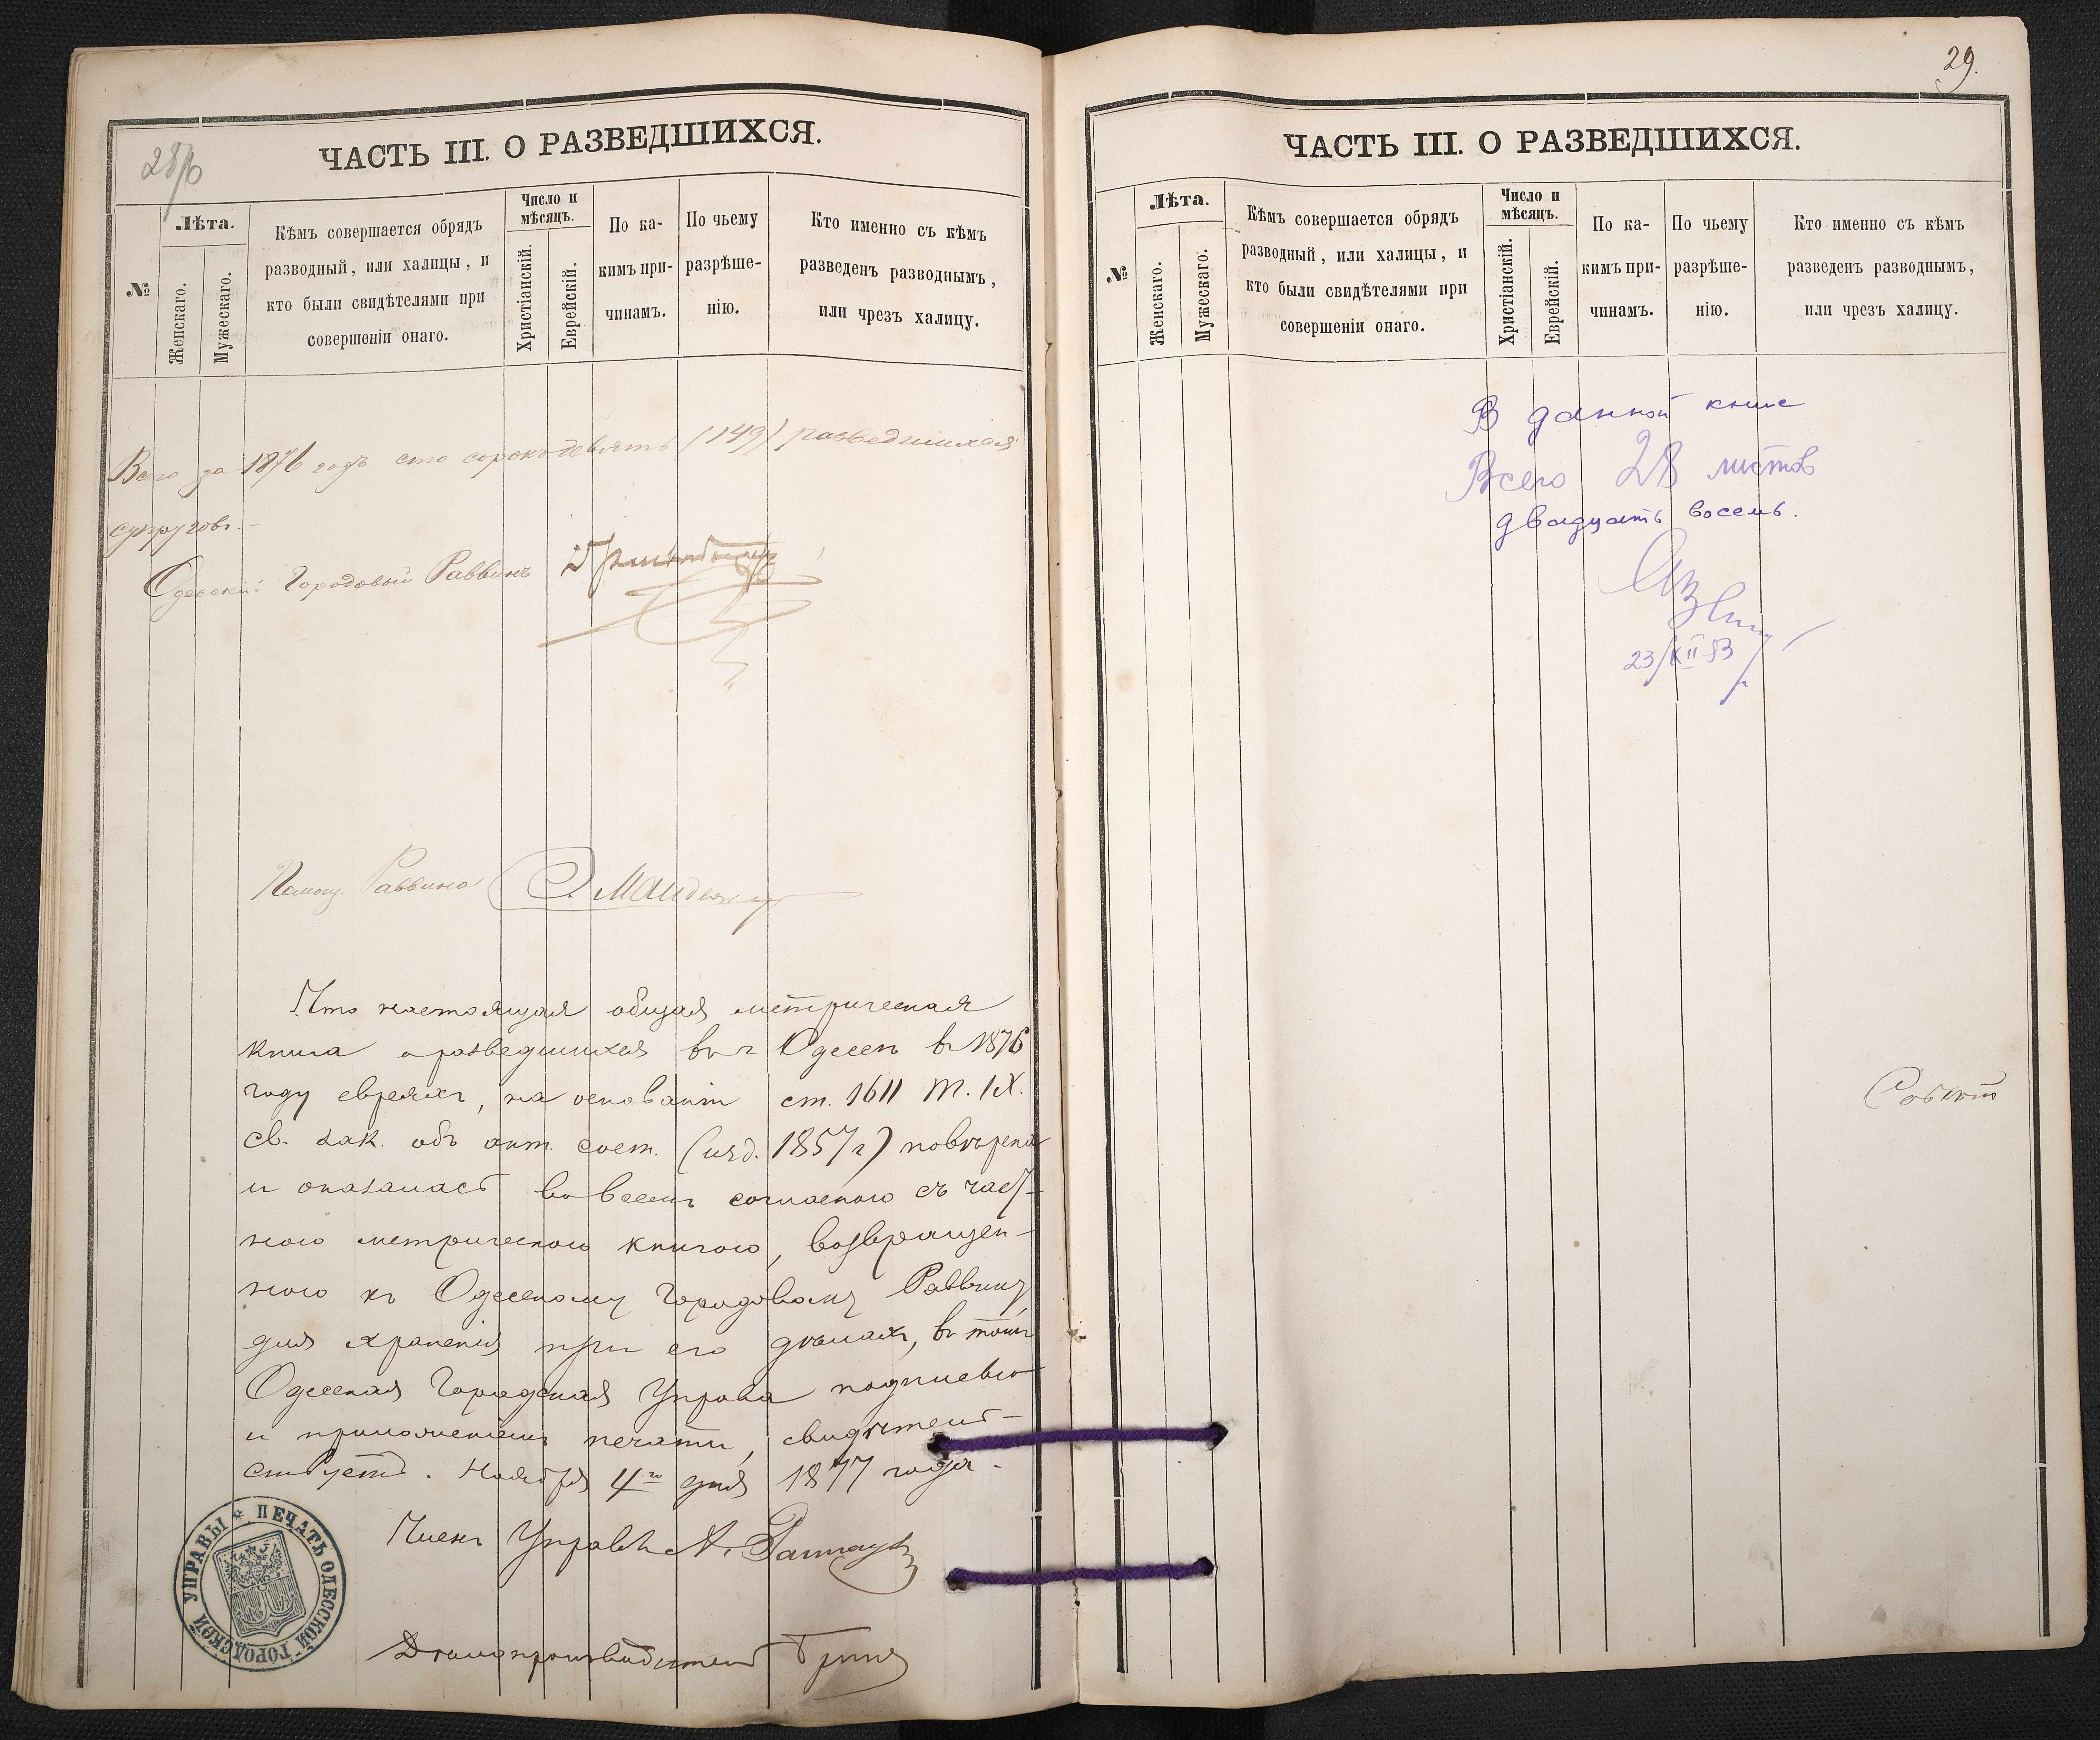 28/6
ЧАСТЬ III. О РАЗВЕДШИХСЯ.
№
Лѣта.
Женскаго.
Мужескаго.
Кѣмъ совершается обрядъ
разводный, или халицы, и
кто были свидѣтелями при
совершеніи онаго.
Число и
мѣсяцъ.
Христіанскій.
Еврейскій.
По ка-
кимъ при-
чинамъ.
По чьему
разрѣше-
нію.
Кто именно съ кѣмъ
разведенъ разводнымъ,
или чрезъ халицу.
Всего за 1876 годъ сто сорокъ девять (149) разведшихся
супруговъ.
Одесскій Городовой Раввинъ
Помощ. Раввина
Что настоящая общая метрическая
книга о разведшихся въ г. Одессѣ въ 1876
году евреяхъ, на основаніи ст. 1611 т. IX.
св. зак. объ акт. сост. (изд. 1857 г) повѣрена
и оказалась во всемъ согласною съ част-
ною метрическою книгою, возвращен-
ною къ Одесскому Городовому Раввину
для храненія при его дѣлахъ, въ томъ
Одесская Городская Управа подписью
и приложеніемъ печати, свидѣтель-
ствуетъ. Ноября 4го дня 1877 года.
Членъ Управы А.
Дѣлопроизводитель
ПЕЧАТЬ ОДЕССКОЙ ГОРОДСКОЙ УПРАВЫ
29.
ЧАСТЬ III. О РАЗВЕДШИХСЯ.
№
Лѣта.
Женскаго.
Мужескаго.
Кѣмъ совершается обрядъ
разводный, или халицы, и
кто были свидѣтелями при
совершеніи онаго.
Число и
мѣсяцъ.
Христіанскій.
Еврейскій.
По ка-
кимъ при-
чинамъ.
По чьему
разрѣше-
нію.
Кто именно съ кѣмъ
разведенъ разводнымъ,
или чрезъ халицу.
В данной книге
Всего 28 листов
двадцать восемь.
23/XII-53